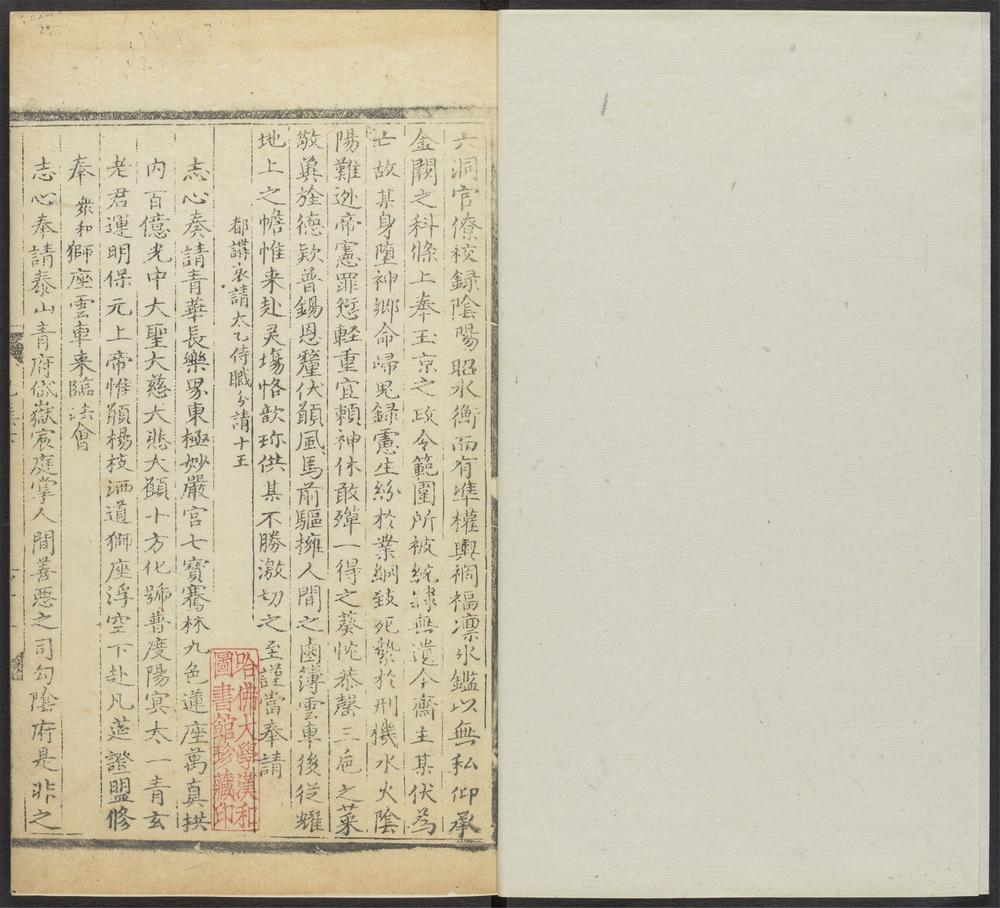 六洞官僚校録陰陽昭水衡而有準權輿禍福凛氷鑑以無私仰承
金闕之科條上奉玉京之政令範圍所被統隷無遺今齋主某伏為
亡故某身墮神鄉命歸鬼録憲生紛於業網致死縶於刑機水火陰
陽難迯帝憲罪愆軽重宜頼神休敢殫一得之葵忱恭罄三巵之菉
敬冀旌德欵普錫恩釐伏願風馬前驅擁人間之鹵簿雲車後従耀
地上之幨惟来赴灵塲恪歆珎供某不勝激切之至謹當奉請
都講宣請太乙侍職分請十王
志心奏請青華長樂界東極妙嚴宫七寶騫林九色蓮座萬真拱
内百億光中大聖大慈大悲大願十方化號普度陽冥太一青玄
老君運明保元上帝惟願楊枝洒道獅座浮空下赴凡莚證盟修
奉 衆和獅座雲車来臨法會
志心奉請泰山青府岱嶽㝠庭掌人間善惡之司勾陰府是非之
哈佛大學漢和
圖書館珍藏印